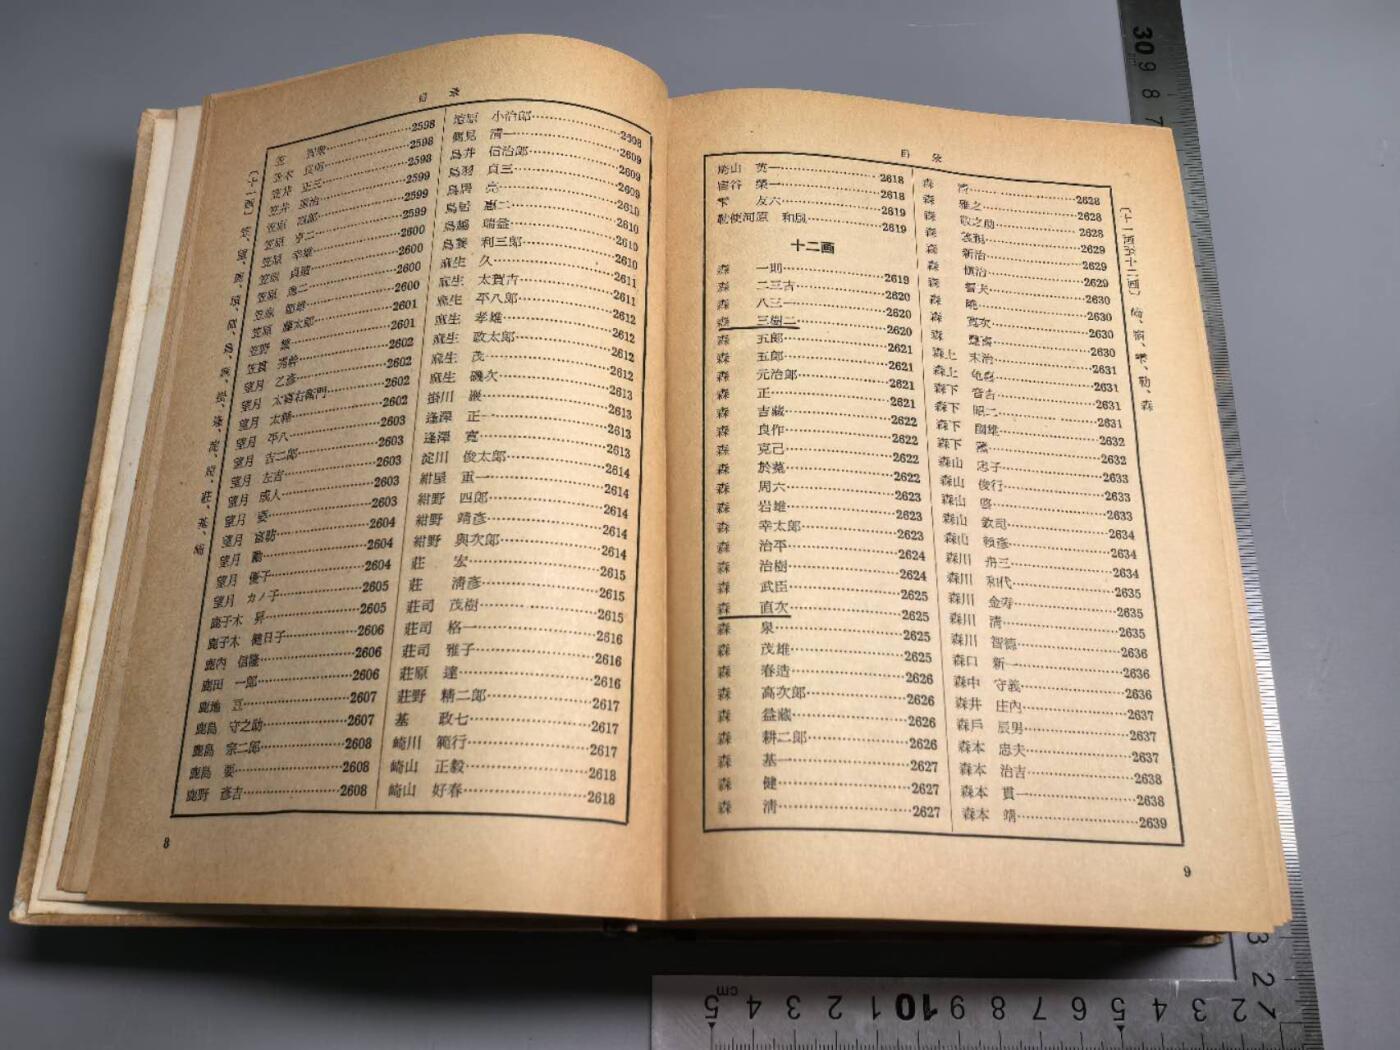 目 录
笠 智衆 2598
笠木 良明 2598
笠井 正三 2598
笠井 2599
笠原 2599
笠原 亨二 2599
笠原 幸雄 2600
笠原 貞 2600
笠原 逸二 2600
笠原 2600
笠原 藤太郎 2601
笠野 2601
笠貫 2602
望月 乙彦 2602
望月 太喜右衞門 2602
望月 太 2602
望月 平八 2603
望月 吉二郎 2603
望月 左吉 2603
望月 成人 2603
望月 2603
望月 富 2604
望月 勳 2604
望月 優子 2604
望月 カノ子 2605
鹿子木 昇 2605
鹿子木 健日子 2606
鹿内 信隆 2606
鹿田 一郎 2606
鹿地 亘 2607
鹿島 守之助 2607
鹿島 宗二郎 2608
鹿島 要 2608
鹿野 彦吉 2608
小治郎 2608
鶴見 清一 2609
鳥井 信治郎 2609
鳥羽 貞三 2609
鳥居 亮 2610
鳥居 惠二 2610
鳥越 晴益 2610
鳥養 利三郎 2610
麻生 久 2611
麻生 太賀吉 2611
麻生 平八郎 2612
麻生 孝雄 2612
麻生 政太郎 2612
麻生 茂 2612
麻生 磯次 2613
掛川 巖 2613
逢澤 正一 2613
逢澤 寛 2613
淀川 俊太郎 2614
紺屋 重一 2614
紺野 四郎 2614
紺野 靖彦 2614
紺野 與次郎 2614
莊 宏 2615
莊 清彦 2615
莊司 茂樹 2615
莊司 格一 2616
莊司 雅子 2616
莊原 達 2616
莊野 精二郎 2617
基 政七 2617
崎川 範行 2617
崎山 正毅 2618
崎山 好春 2618
8
目 录
崎山 英一 2618
榮一 2618
雫 友六 2619
勅使河原 和風 2619
十二画
森 一則 2619
森 二三吉 2620
森 八三一 2620
森 三樹二 2620
森 五郎 2621
森 五郎 2621
森 元治郎 2621
森 正 2621
森 吉藏 2622
森 良作 2622
森 克己 2622
森 於菟 2622
森 周六 2623
森 岩雄 2623
森 幸太郎 2623
森 治平 2624
森 治樹 2624
森 武臣 2625
森 直次 2625
森 泉 2625
森 茂雄 2625
森 春造 2626
森 高次郎 2626
森 益藏 2626
森 耕二郎 2626
森 基一 2627
森 健 2627
森 清 2627
森 清一 2628
森 雅之 2628
森 敬之助 2628
森 2629
森 新治 2629
森 愼治 2629
森 誓夫 2630
森 曉 2630
森 寛次 2630
森 2630
森上 末治 2631
森上 亀喜 2631
森下 音吉 2631
森下 昭二 2631
森下 國雄 2632
森下 2632
森山 忠子 2633
森山 俊行 2633
森山 啓 2633
森山 欽司 2634
森山 頼彦 2634
森川 舟三 2634
森川 和代 2635
森川 金寿 2635
森川 清 2635
森川 智德 2636
森口 新一 2636
森中 守義 2636
森井 庄內 2637
森戶 辰男 2637
森本 忠夫 2637
森本 治吉 2638
森本 貫一 2638
森本 靖 2639
〔十一画至十二画〕 崎、 雫、勅、森
9